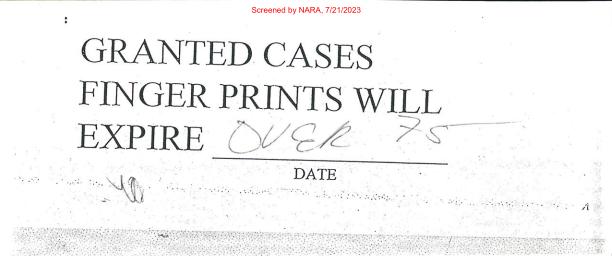 Screened by NARA, 7/21/2023
GRANTED CASES
FINGER PRINTS WILL
EXPIRE OVER 75
DATE